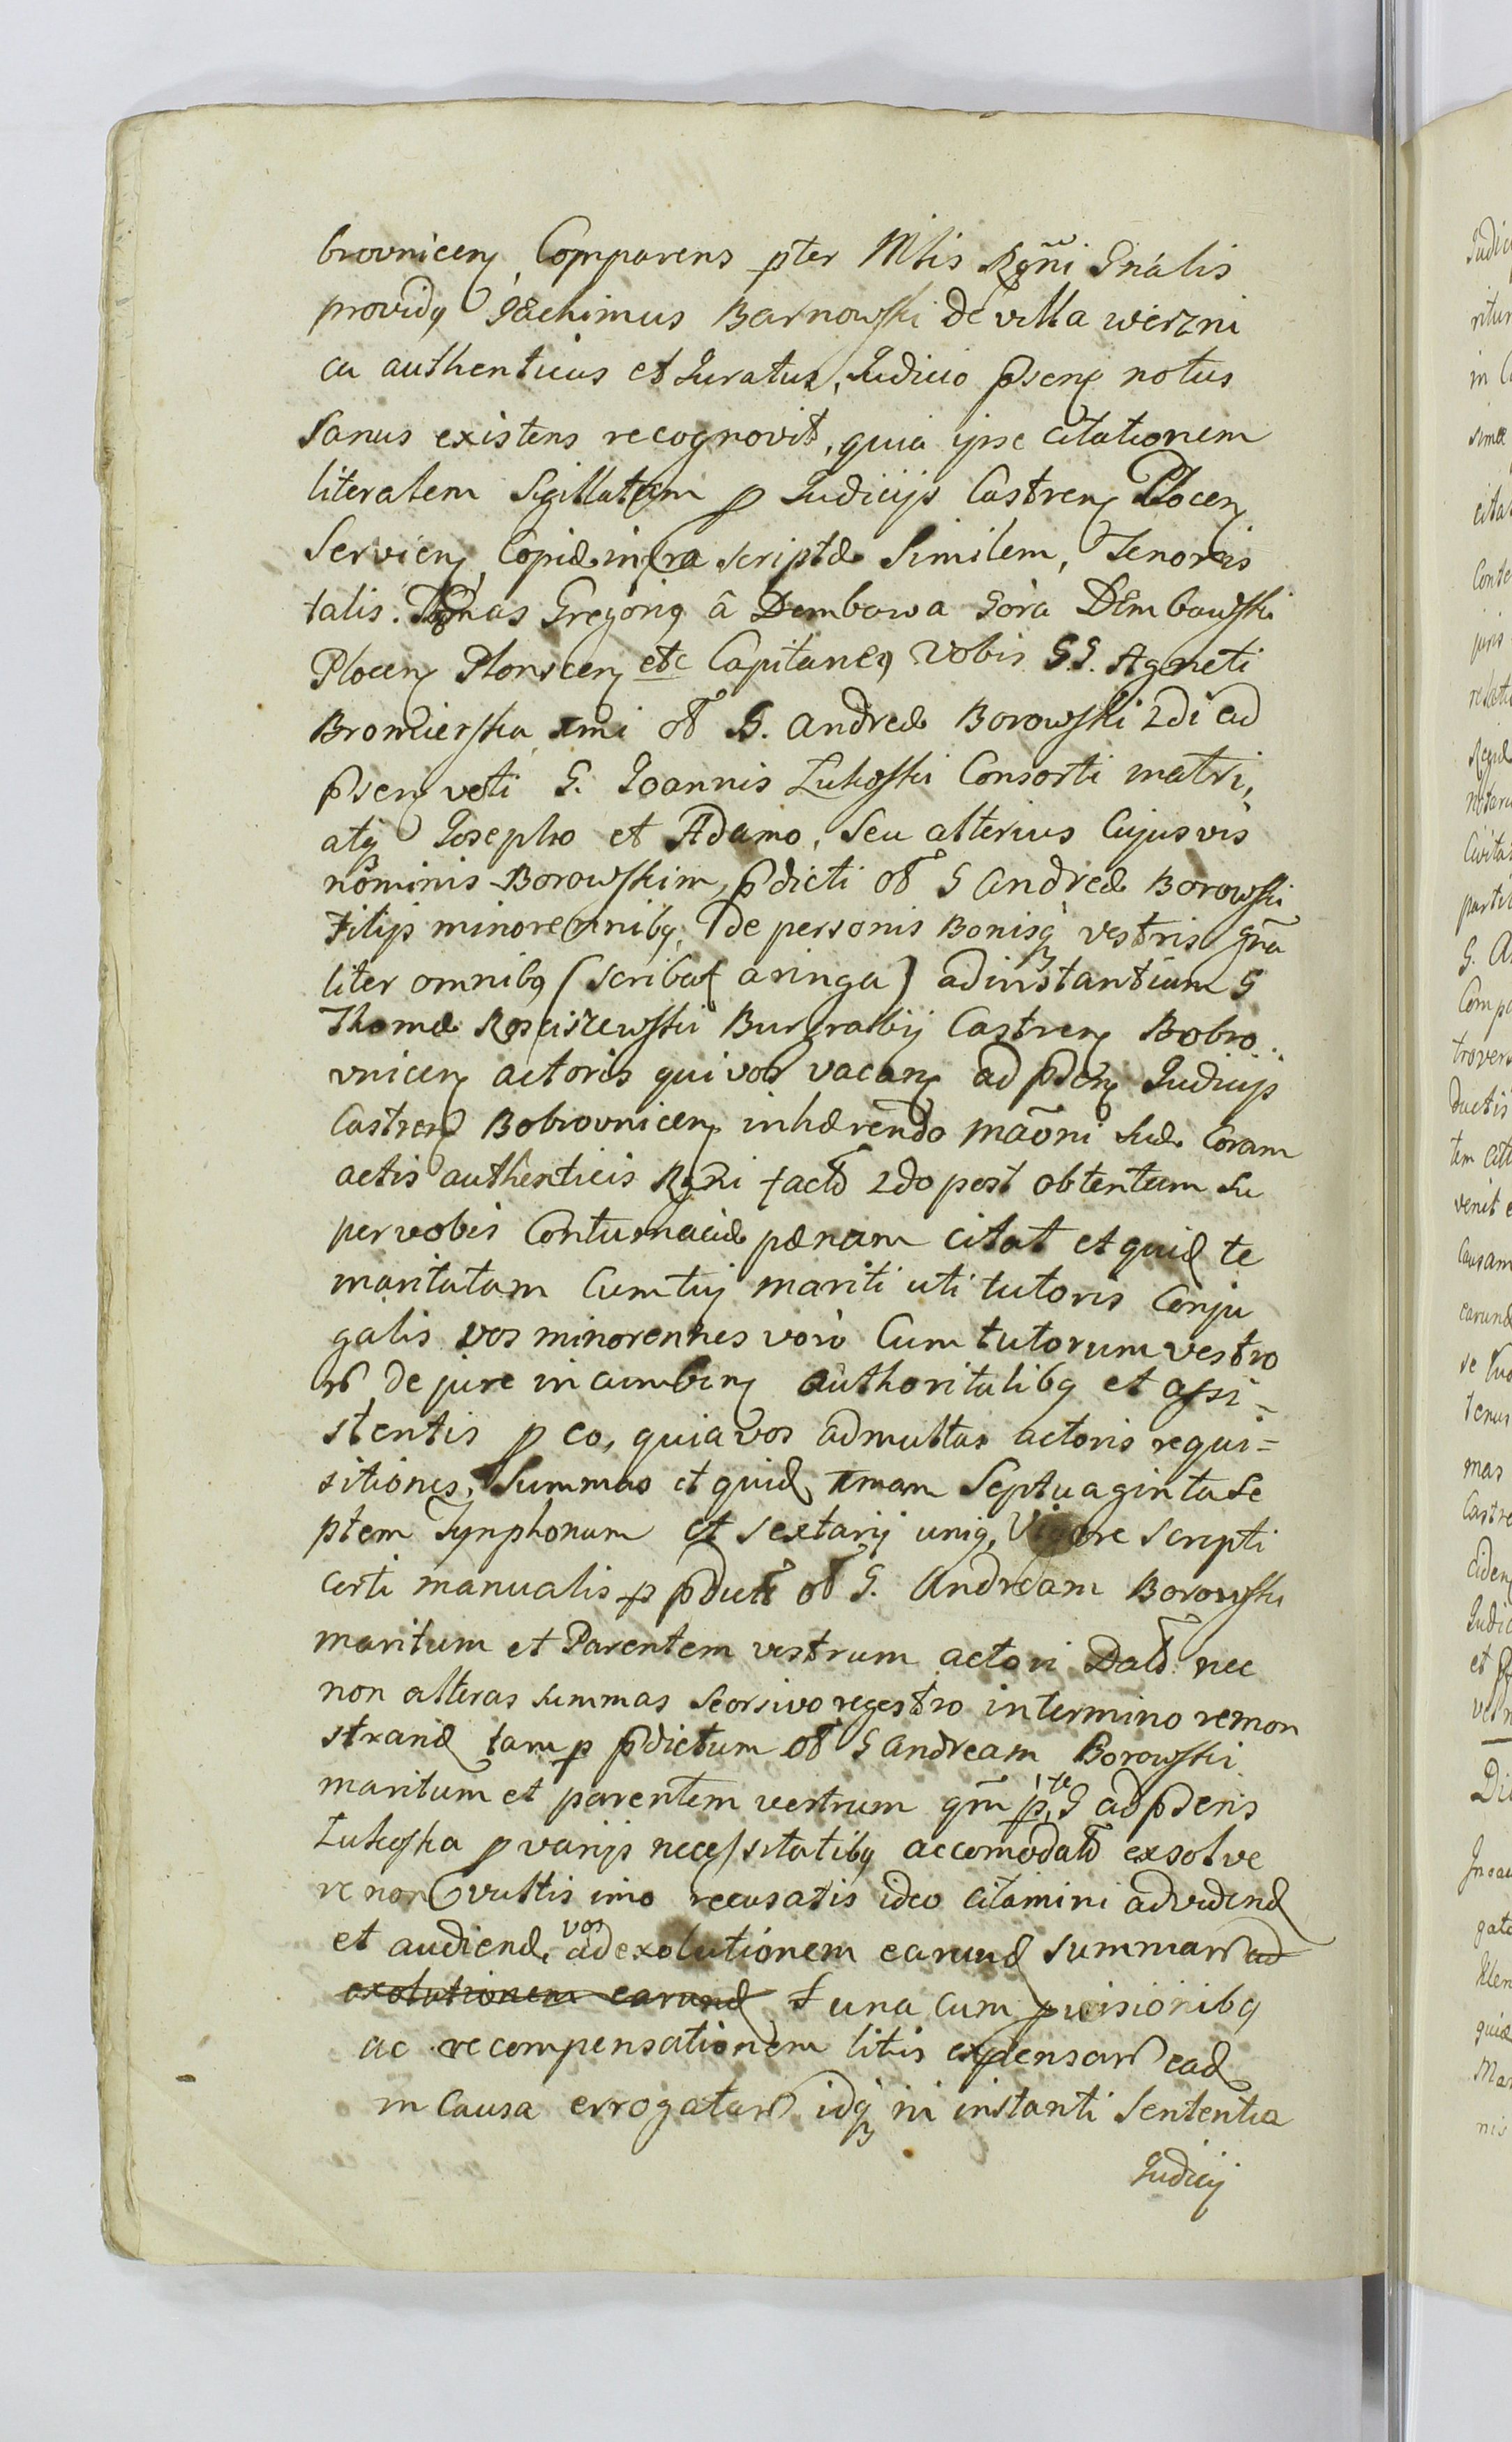 brovnicen, Comparens pter Mtis Rgni Gnalis
providq Jachimus Barnowski de villa wierzni
ca authenticus et Juratus, Judicio psenq notus
Sanus existens recognovit, quia ipse Citationem
literalem Sigillatam p Judicijs Castren Plocen
Servien, Copiæ infra scriptæ Similem, Tenoris
talis. Thomas Gregoriq â Dembowa Gora Dembowski
Plocen Plonscen etc Capitaneq Vobis G.G. Agneti
Bromierska 1mi oł G. Andreæ Borowski 2di ad
psen veti G. Joannis Lukoski Consorti matri,
atq Josepho et Adamo, Seu alterius Cujusvis
nominis Borowskim, pdicti oł G Andreæ Borowski
Filijs minorennibq, de personis Bonisq vestris gna
liter omnibq (scribat aringa) ad instantiam G
Thomæ Rosciszewski Burgrabij Castren Bobro..
vnicen actoris qui vos vacan ad psen Judicijs
Castren Bobrovnicen inhærendo maoni suæ Coram
actis authenticis Rgni fact 2do post obtentam Su
per vobis Contumaciæ pænam citat et quid te
maritatam Cum tuj mariti uti tutoris Conju
galis vos minorennes voro Cum tutorum vestro
r de jure incumben authoritatibq et assi=
stentis p eo, quia vos ad multas actoris requi=
sitiones, Summas et quid 1mam Septuaginta Se
ptem Tynphonum et sextarij uniq, Vigore scripti
certi manualis p pdict oł G. Andream Borowski
maritum et Parentem vestrum actori Dat nec
non alteras summas Seorsivo regestro in termino remon
strand tam p pdictum oł G Andream Borowski
maritum et parentem vestrum qm p te G ad psens
Lukoska p varijs necessitatibq accomodat exsolve
re non vultis imo recusatis ideo citamini ad vidend
et audiend, vos ad exolutionem earund summar ad
exolutionem earund t una cum pvisionibq
ac recompensationem litis expensar ead
in Causa errogatar idq in instanti Sententia
Judicij